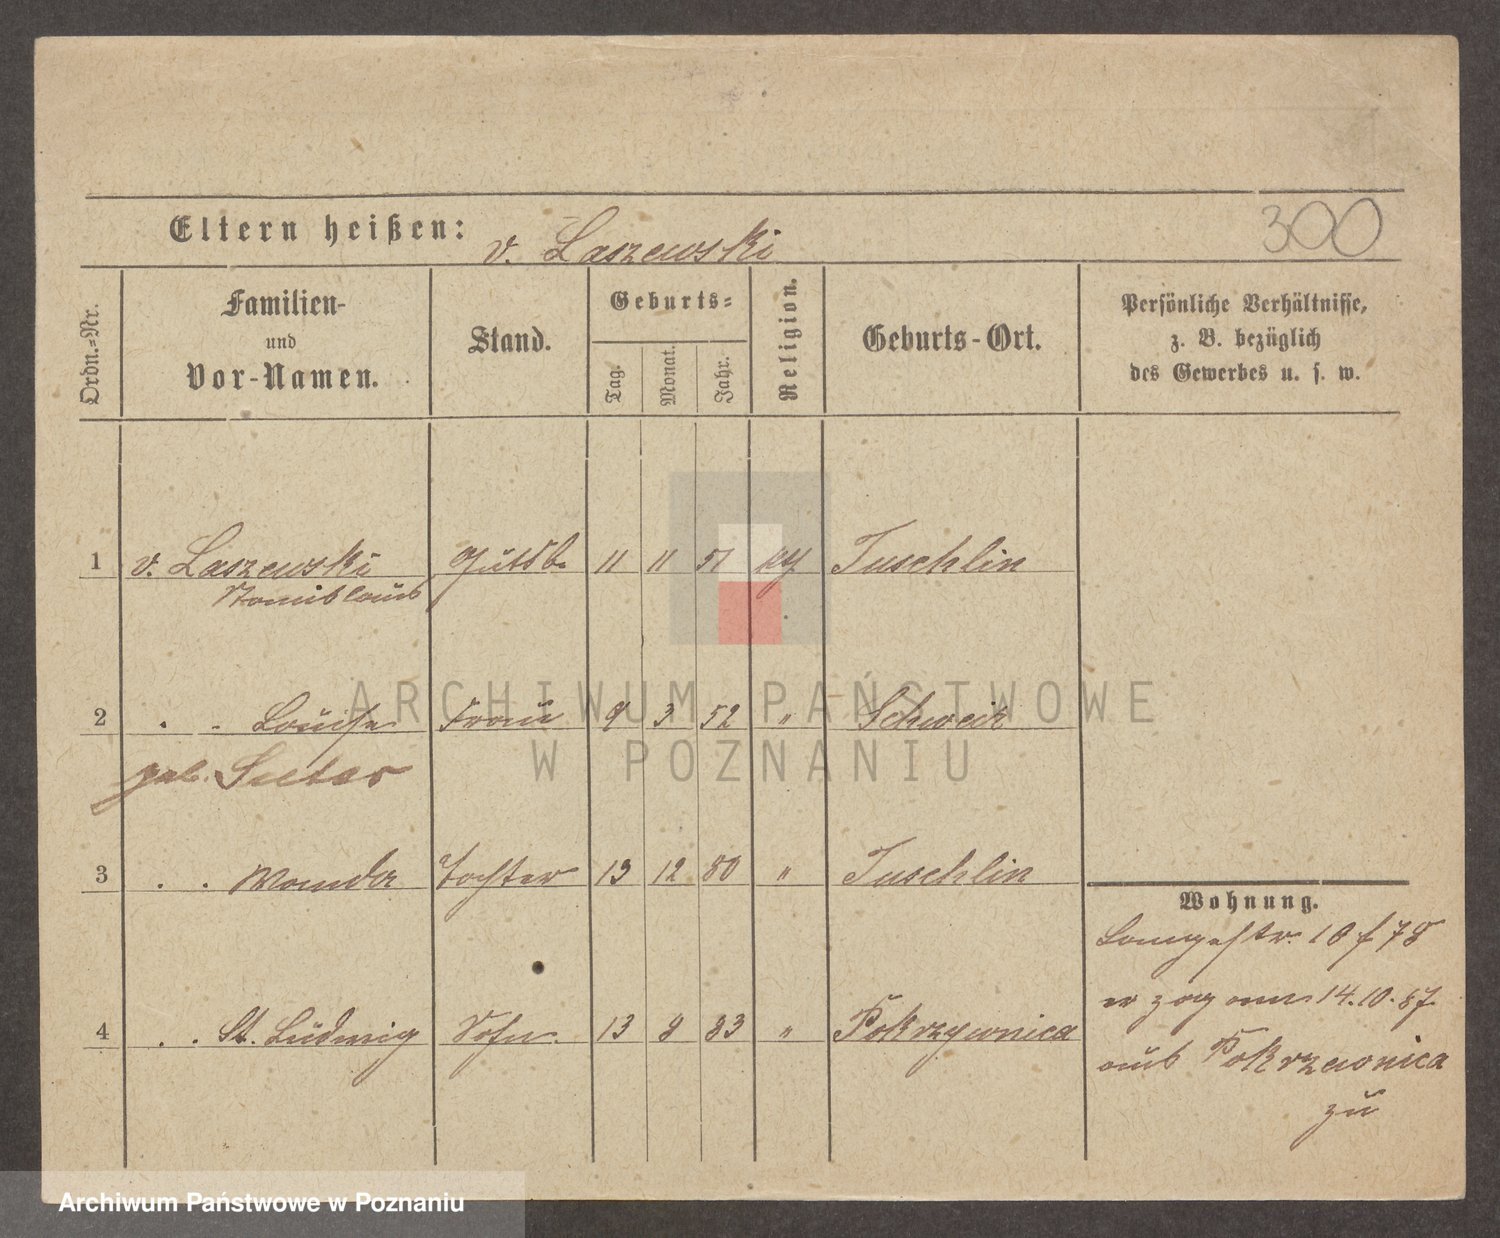 300
Eltern heißen: v. Laszewski
Ordn.=Nr.
Familien-
und
Vor-Namen.
Stand.
Geburts=
Tag.
Monat.
Jahr.
Religion.
Geburts-Ort.
Persönliche Verhältnisse,
z. B. bezüglich
des Gewerbes u. s. w.
1 v. Laszewski Gutsb. 11 11 51 Tuschlin
Stanislaus
2 . . Louise Frau 9 3 52 " Schweiz
geb. Sutter
3 . . Wanda Tochter 13 12 80 " Tuschlin
4 . . St. Ludwig Sohn. 13 9 83 " Pokrzywnica
Wohnung.
Langestr. 10 f 78
er zog am 14.10.87
aus Pokrzewnica
zu
ARCHIWUM PAŃSTWOWE
W POZNANIU
Archiwum Państwowe w Poznaniu